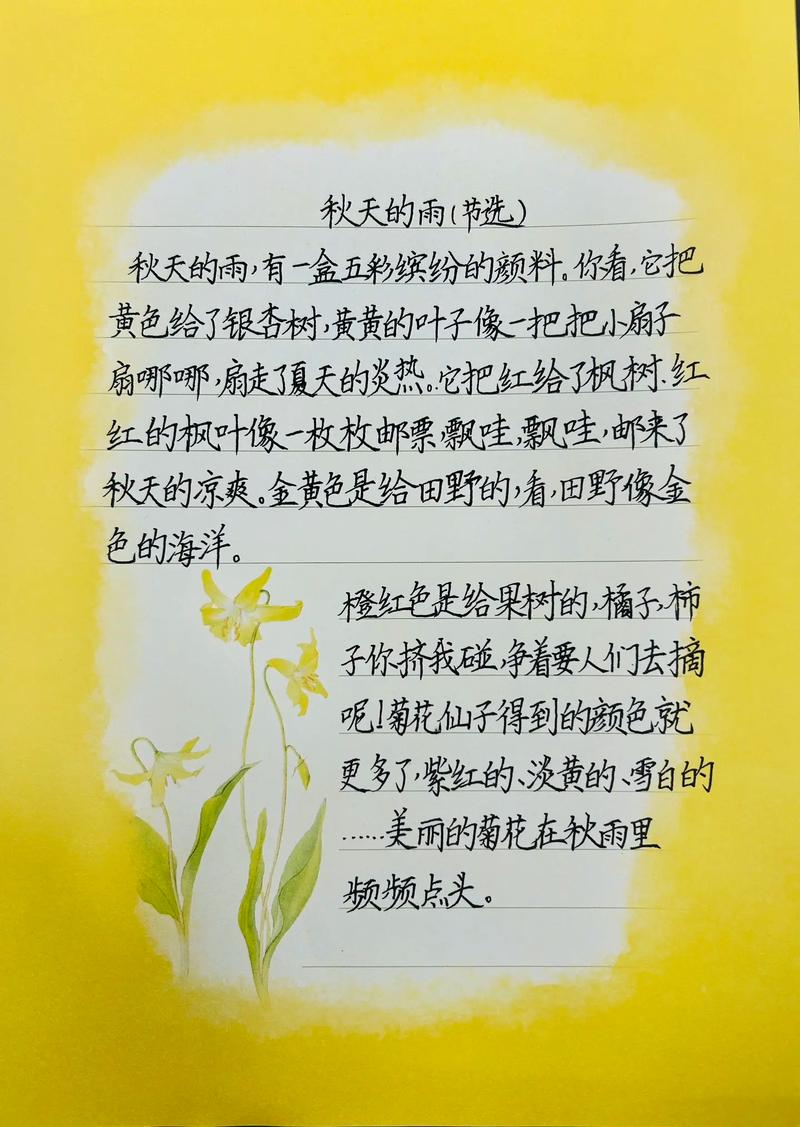 秋天的雨(节选)
秋天的雨,有一盒五彩缤纷的颜料。你看,它把
黄色给了银杏树,黄黄的叶子像一把把小扇子
扇哪哪,扇走了夏天的炎热。它把红给了枫树.红
红的枫叶像一枚枚邮票,飘哇,飘哇,邮来了
秋天的凉爽。金黄色是给田野的,看,田野像金
色的海洋。
橙红色是给果树的,橘子,柿
子你挤我碰,争着要人们去摘
呢!菊花仙子得到的颜色就
更多了,紫红的、淡黄的、雪白的
……美丽的菊花在秋雨里
频频点头。